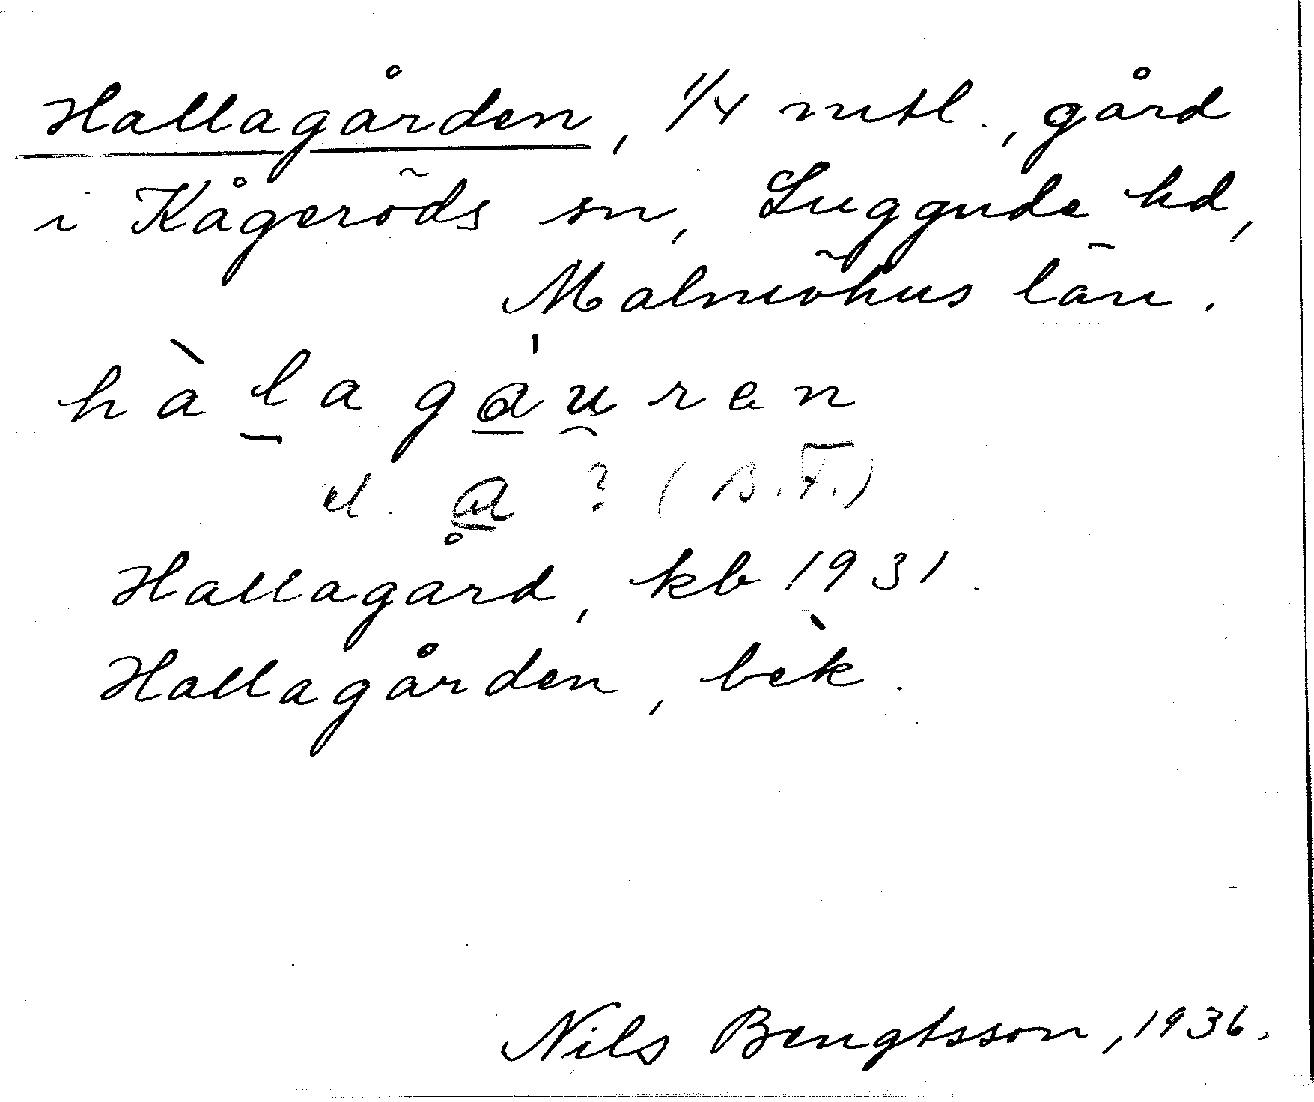 Hallagården, 1/4 mtl., gård
i Kågeröds sn, Luggude hd,
Malmöhus län.
hàlagáu̯ren
el. a ? (B.F.)
Hallagård, kb 1931.
Hallagården, bèk.
Nils Bengtsson, 1936.